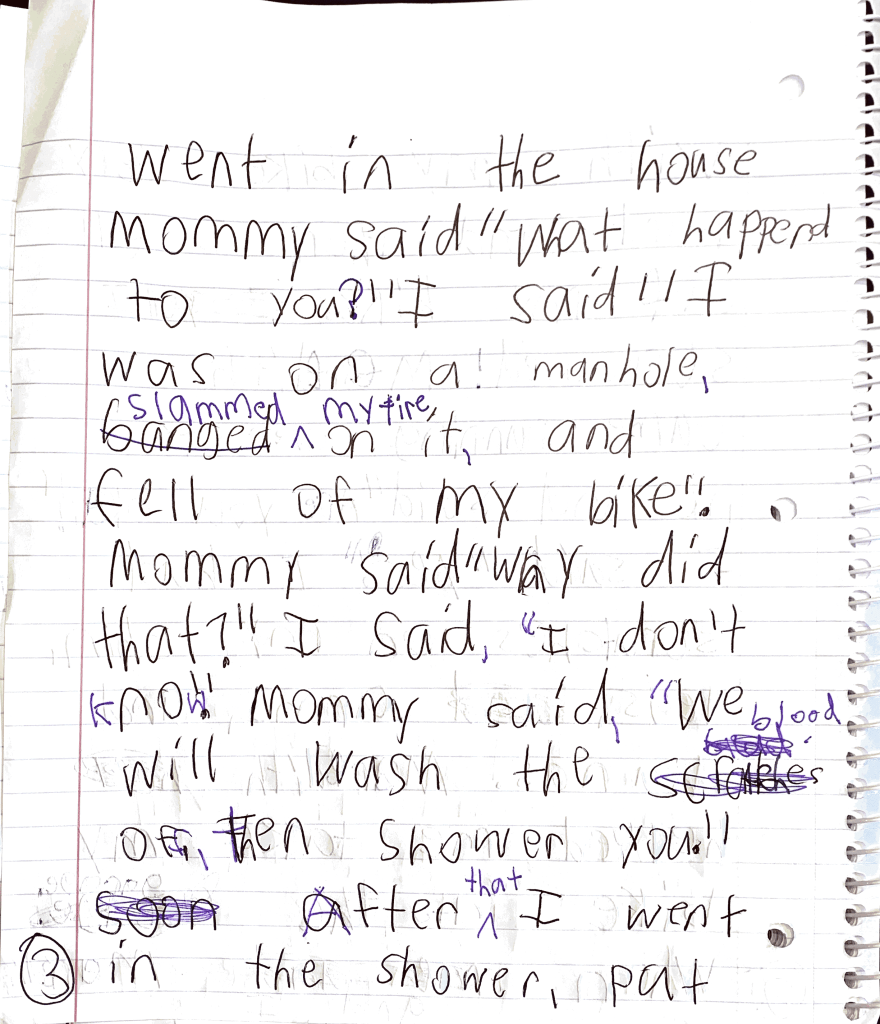 went in the house
Mommy said "What happend
to you?" I said "I
was on a manhole,
slammed my tire,
banged ^ on it, and
fell of my bike".
Mommy said "Why did
that?" I said, "I don't
know" Mommy said, "We
blood
will wash the scratches
off, then shower you."
that
soon After ^ I went
3 in the shower, pat